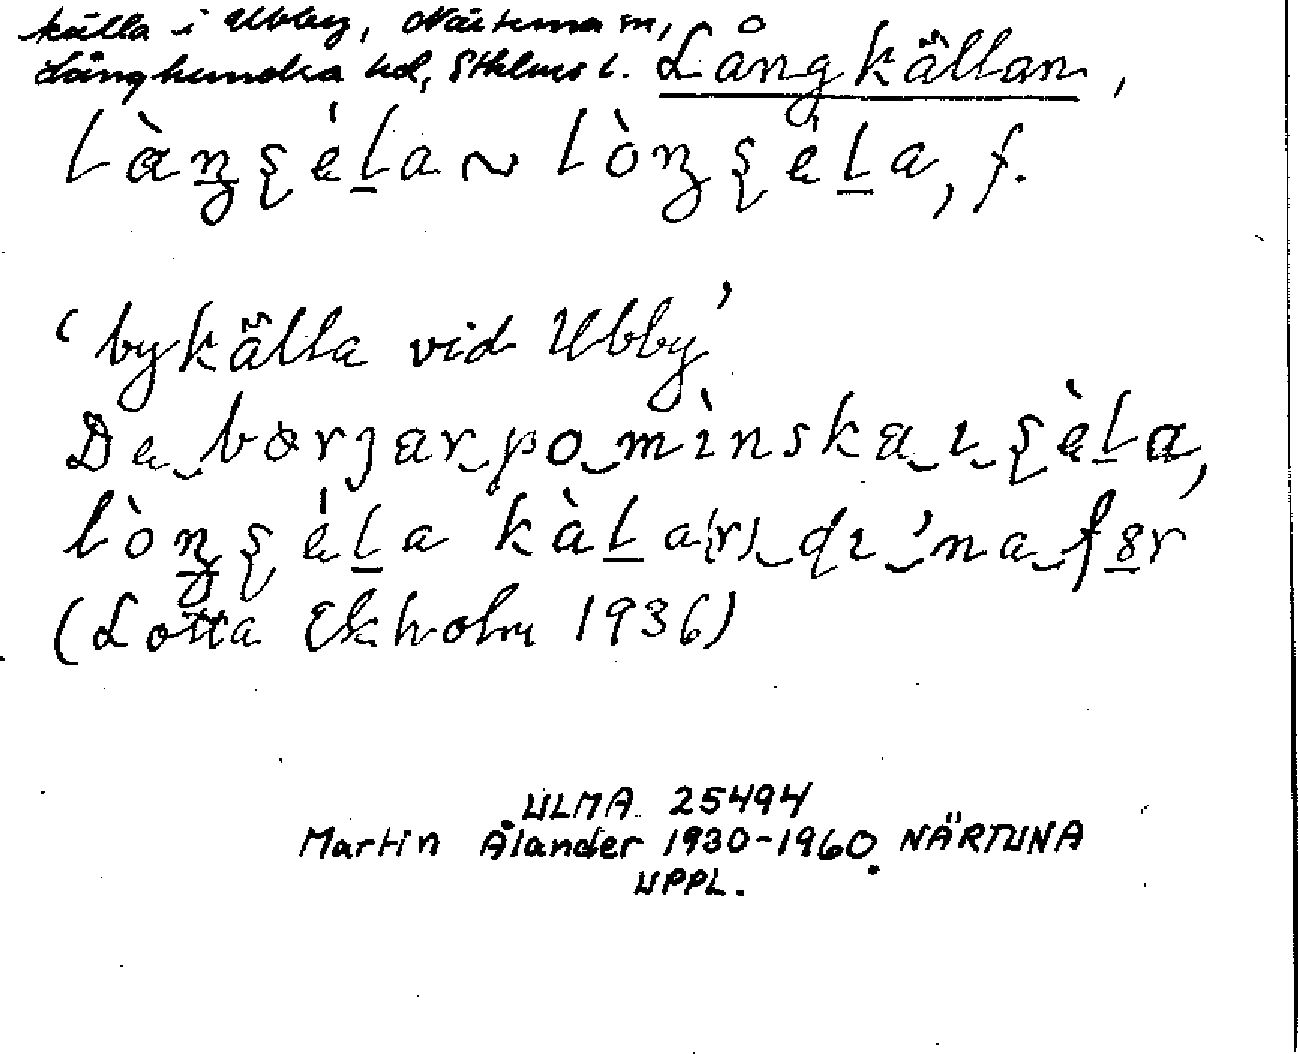 källa i Ubby, Närtuna sn,
Långhundra hd, Sthlms l. Långkällan,
làŋʂéla ~ lòŋʂéla, f.
‘bykälla vid Ubby’
De‿bərjar‿po‿mìnska‿ı‿ʂèla,
lòŋʂéla kàla(r)‿dı‿'na‿fɞr
(Lotta Ekholm 1936)
ULMA 25494
Martin Ålander 1930-1960. NÄRTUNA
UPPL.